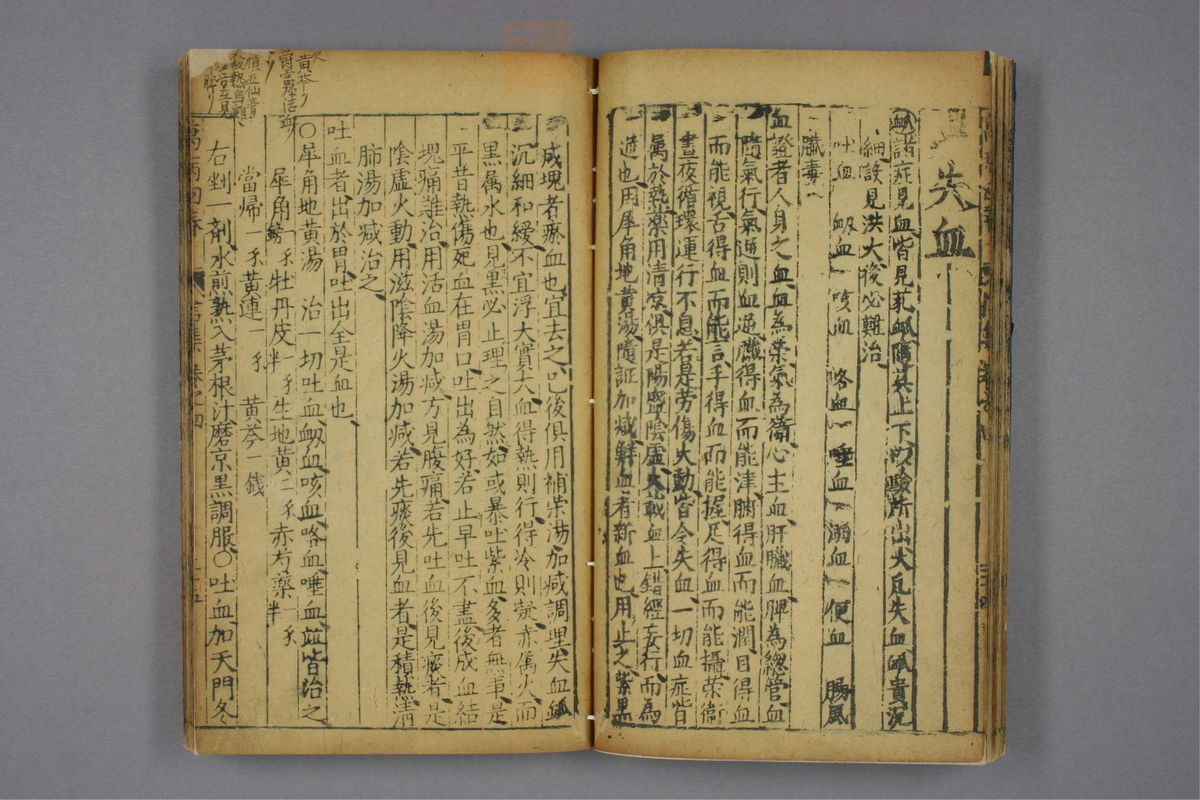 失血
衂諸症見血皆見芤衂隨其上下以驗所出大凡失血衂貴沉
細設見洪大後必難治
吐血 衂血 咳血 咯血 唾血 溺血 便血 腸風
臟毒
血證者人身之血血為榮氣為衛心主血肝臟血脾為總管血
隨氣行氣逆則血逆臟得血而能津腑得血而能潤目得血
而能視舌得血而能言手得血而能握足得血而能攝榮衛
晝夜循環運行不息若是勞傷火動皆令失血一切血症皆
屬於熱藥用清凉俱是陽盛陰虛火載血上錯經妄行而為
逆也用犀角地黃湯隨証加减鮮血者新血也用止之紫黑
成塊者瘀血也宜去之已後俱用補榮湯加减調理失血衂
沉細和緩不宜浮大實大血得熱則行得冷則凝赤属火而
黑属水也見黑必止理之自然如或暴吐紫血多者無事是
平昔熱傷死血在胃口吐出為好若止早吐不盡後成血結
塊痛難治用活血湯加减方見腹痛若先吐血後見痰者是
陰虛火動用滋陰降火湯加减若先痰後見血者是積熱清
肺湯加减治之
吐血者出於胃吐出全是血也
○犀角地黃湯 治一切吐血衂血咳血咯血唾血並皆治之
犀角 牡丹皮 生地黃二 赤芍藥一
當帰一 黃連一 黃芩一錢
右剉一剤水煎熟入茅根汁磨京黑調服○吐血加天門冬
萬病回春
卷之四